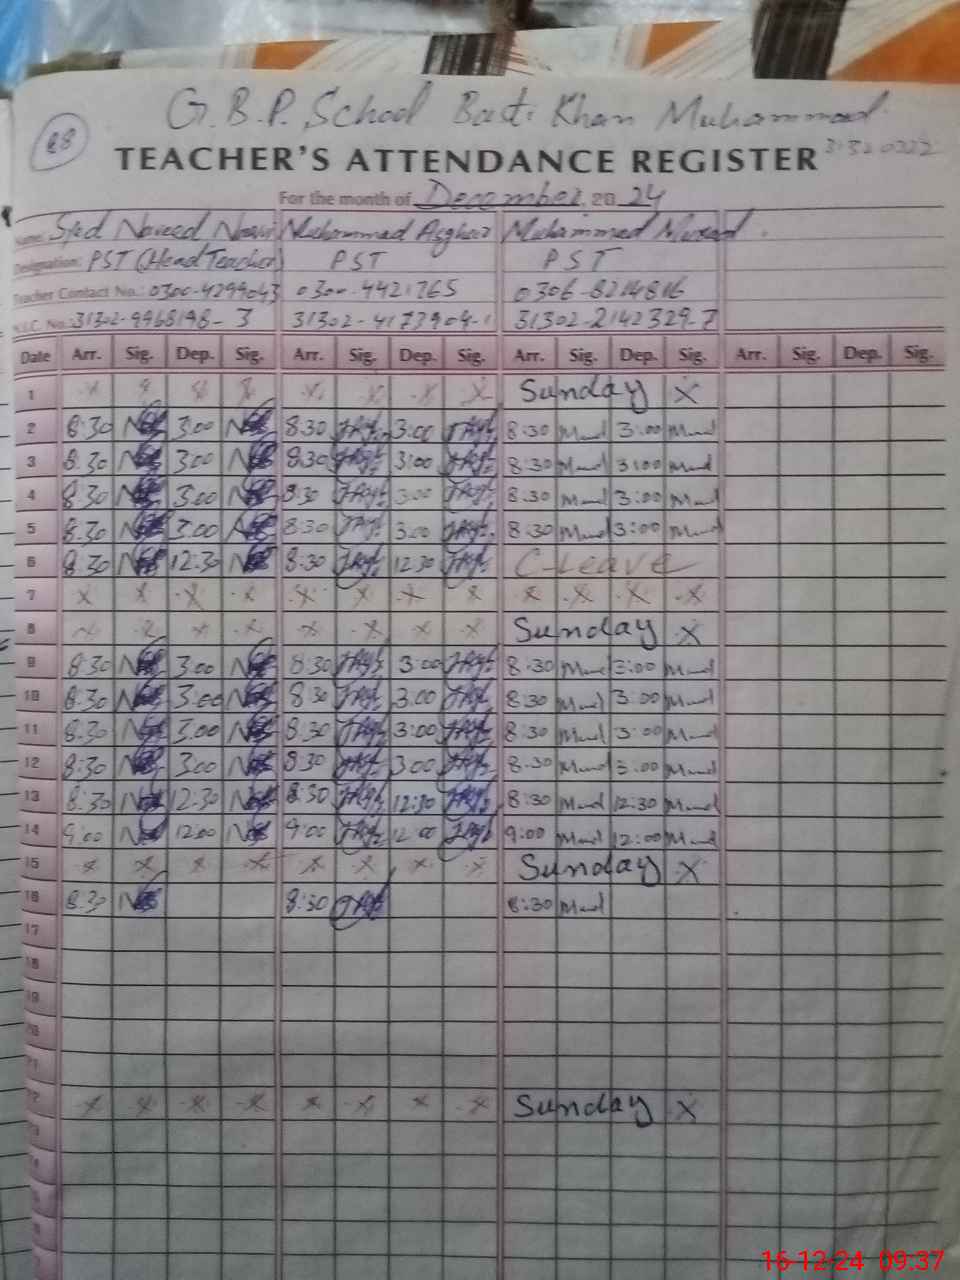 28
G.B.P. School Basti Khan Muhammad
TEACHER'S ATTENDANCE REGISTER
For the month of December 2024
Name: Syed Naveed Muhammad Asghar Muhammad Murad
Designation: PST (Head Teacher) PST PST
Teacher Contact No.: 0300-4299043 0300-4421765 0306-8214816
N.I.C. No.: 31302-9968198-3 31302-4173904-1 31302-2142329-7
Date Arr. Sig. Dep. Sig. Arr. Sig. Dep. Sig. Arr. Sig. Dep. Sig. Arr. Sig. Dep. Sig.
1 x x x x x x x x Sunday x
2 8:30 3:00 8:30 3:00 8:30 3:00
3 8:30 3:00 8:30 3:00 8:30 3:00
4 8:30 3:00 8:30 3:00 8:30 3:00
5 8:30 3:00 8:30 3:00 8:30 3:00
6 8:30 12:30 8:30 12:30 C-Leave
7 x x x x x x x x x x x x
8 x x x x x x x x Sunday x
9 8:30 3:00 8:30 3:00 8:30 3:00
10 8:30 3:00 8:30 3:00 8:30 3:00
11 8:30 3:00 8:30 3:00 8:30 3:00
12 8:30 3:00 8:30 3:00 8:30 3:00
13 8:30 12:30 8:30 12:30 8:30 12:30
14 9:00 12:00 9:00 12:00 9:00 12:00
15 x x x x x x x x Sunday x
16 8:30 8:30 8:30
17
18
19
20
21
22 x x x x x x x x Sunday x
23
16-12-24 09:37